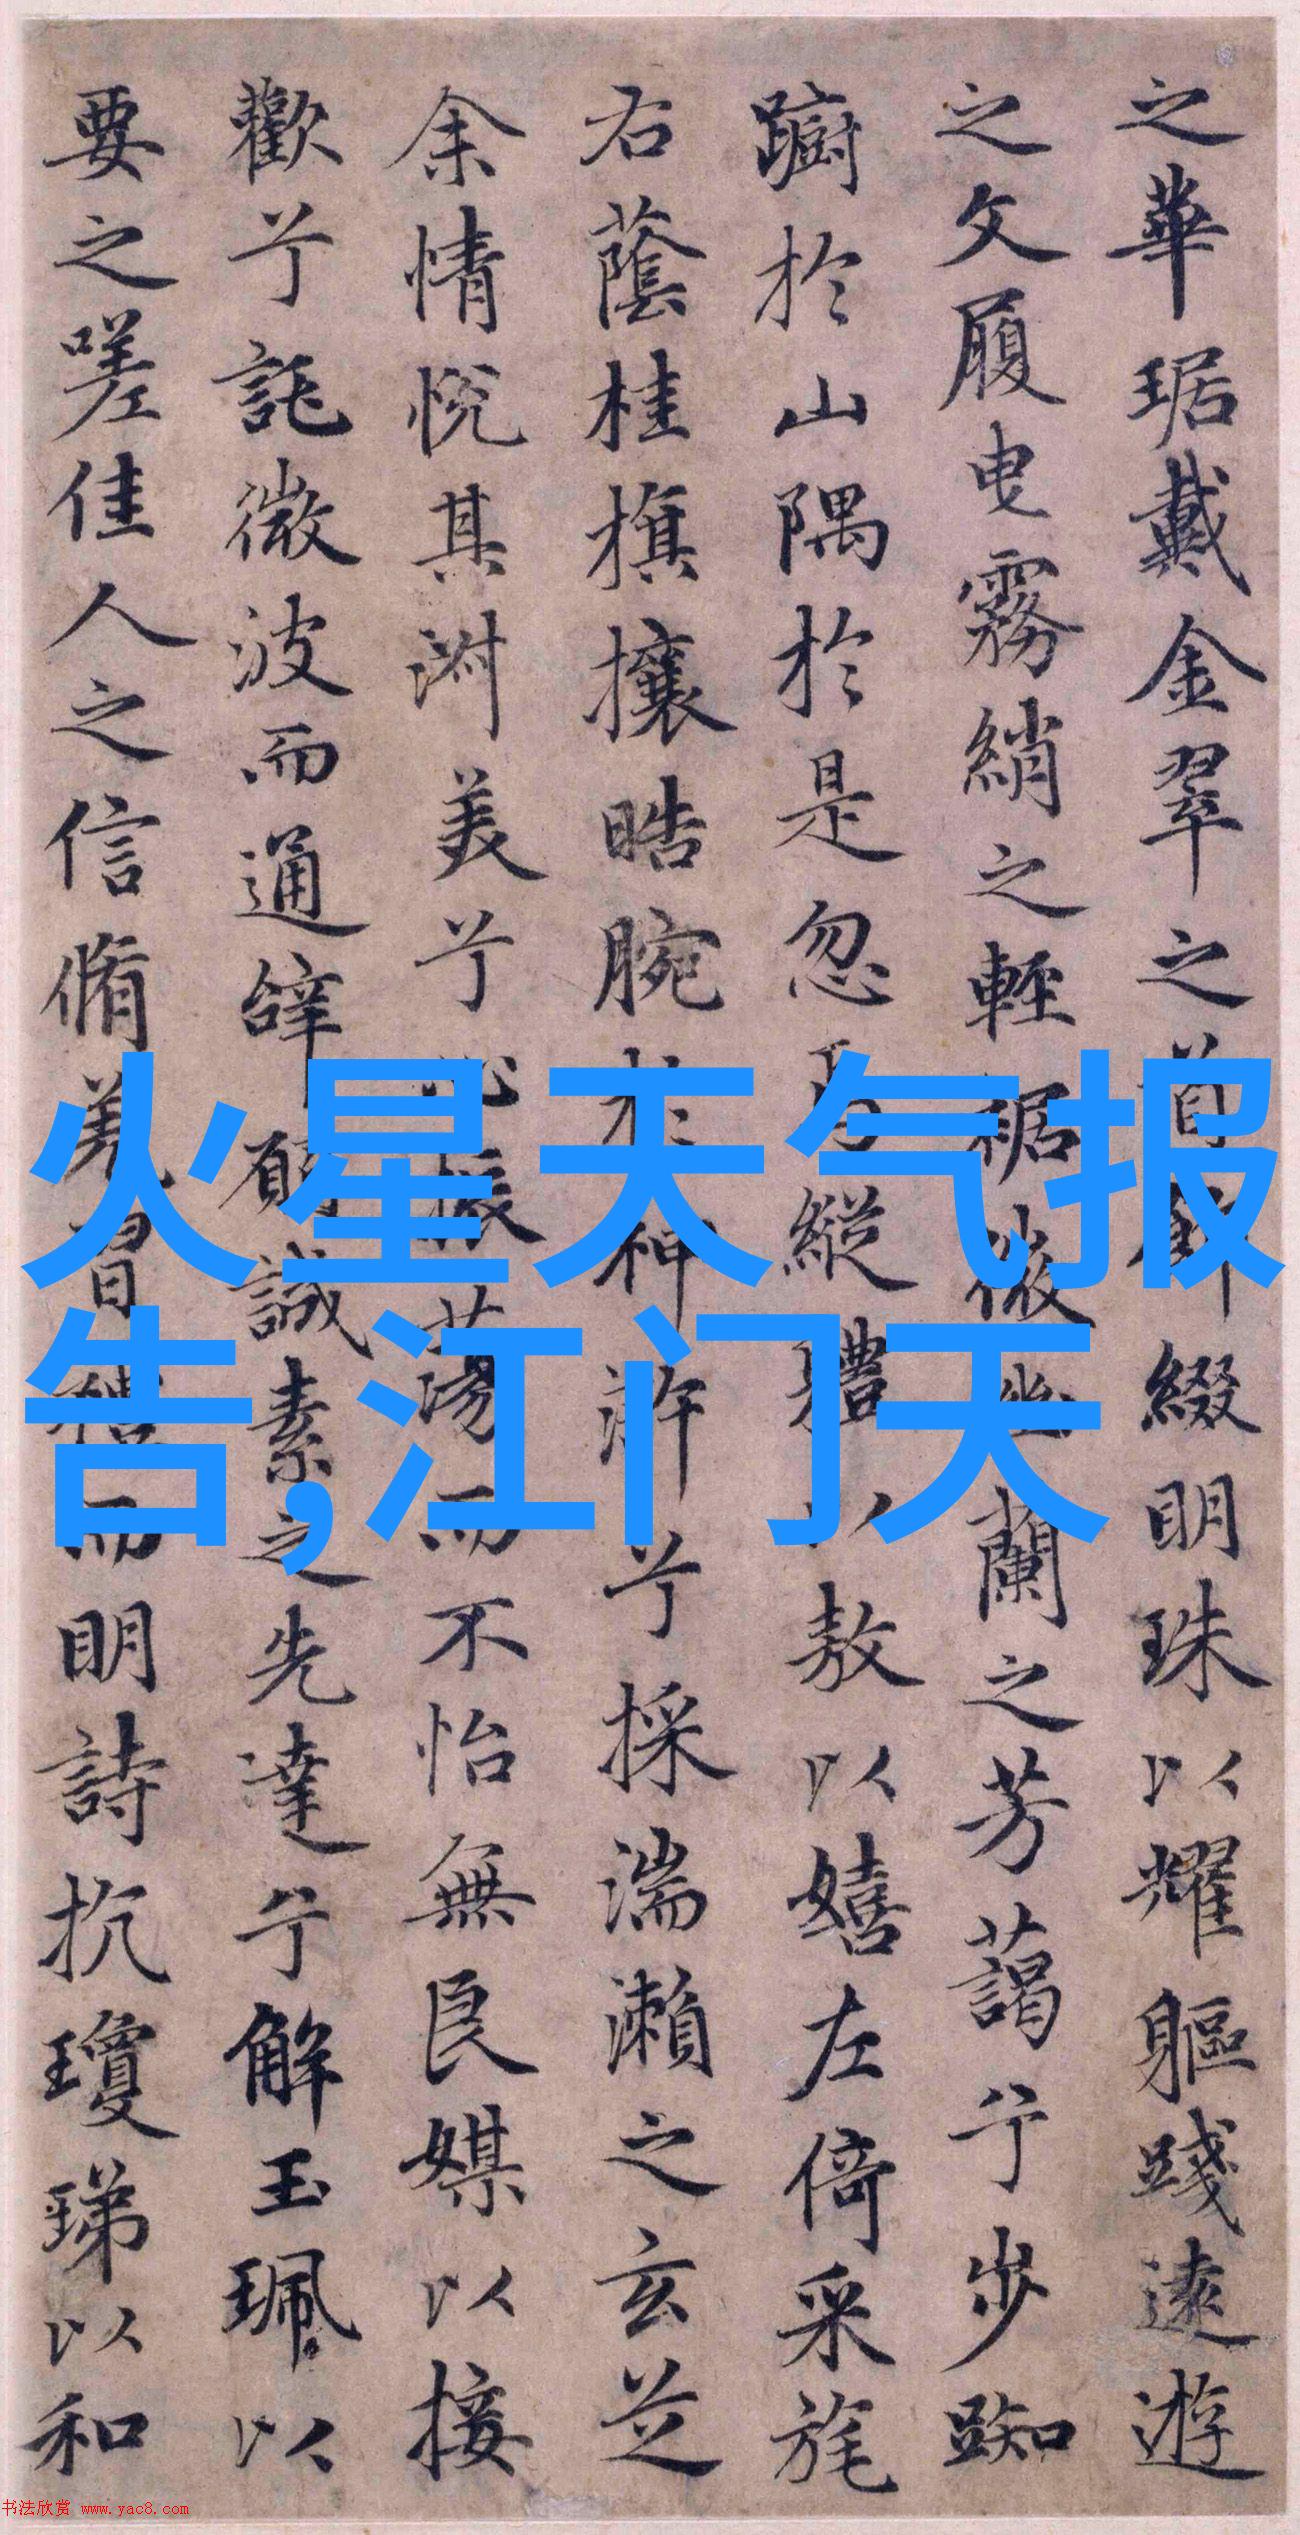 之華琚戴金翠之首飾綴明珠以耀軀踐遠遊
之文履曳霧綃之輕裾微幽蘭之芳藹兮步踟
躕於山隅於是忽焉縱體以敖以嬉左倚采旄
右蔭桂旗攘晧腕於神滸兮採湍瀨之玄芝
余情悅其淑美兮心振蕩而不怡無良媒以接
歡兮託微波而通辭願誠素之先達兮解玉珮以
要之嗟佳人之信脩羌習禮而明詩抗瓊珶以和
火星天气报
告,江门天
书法欣赏 www.yac8.com